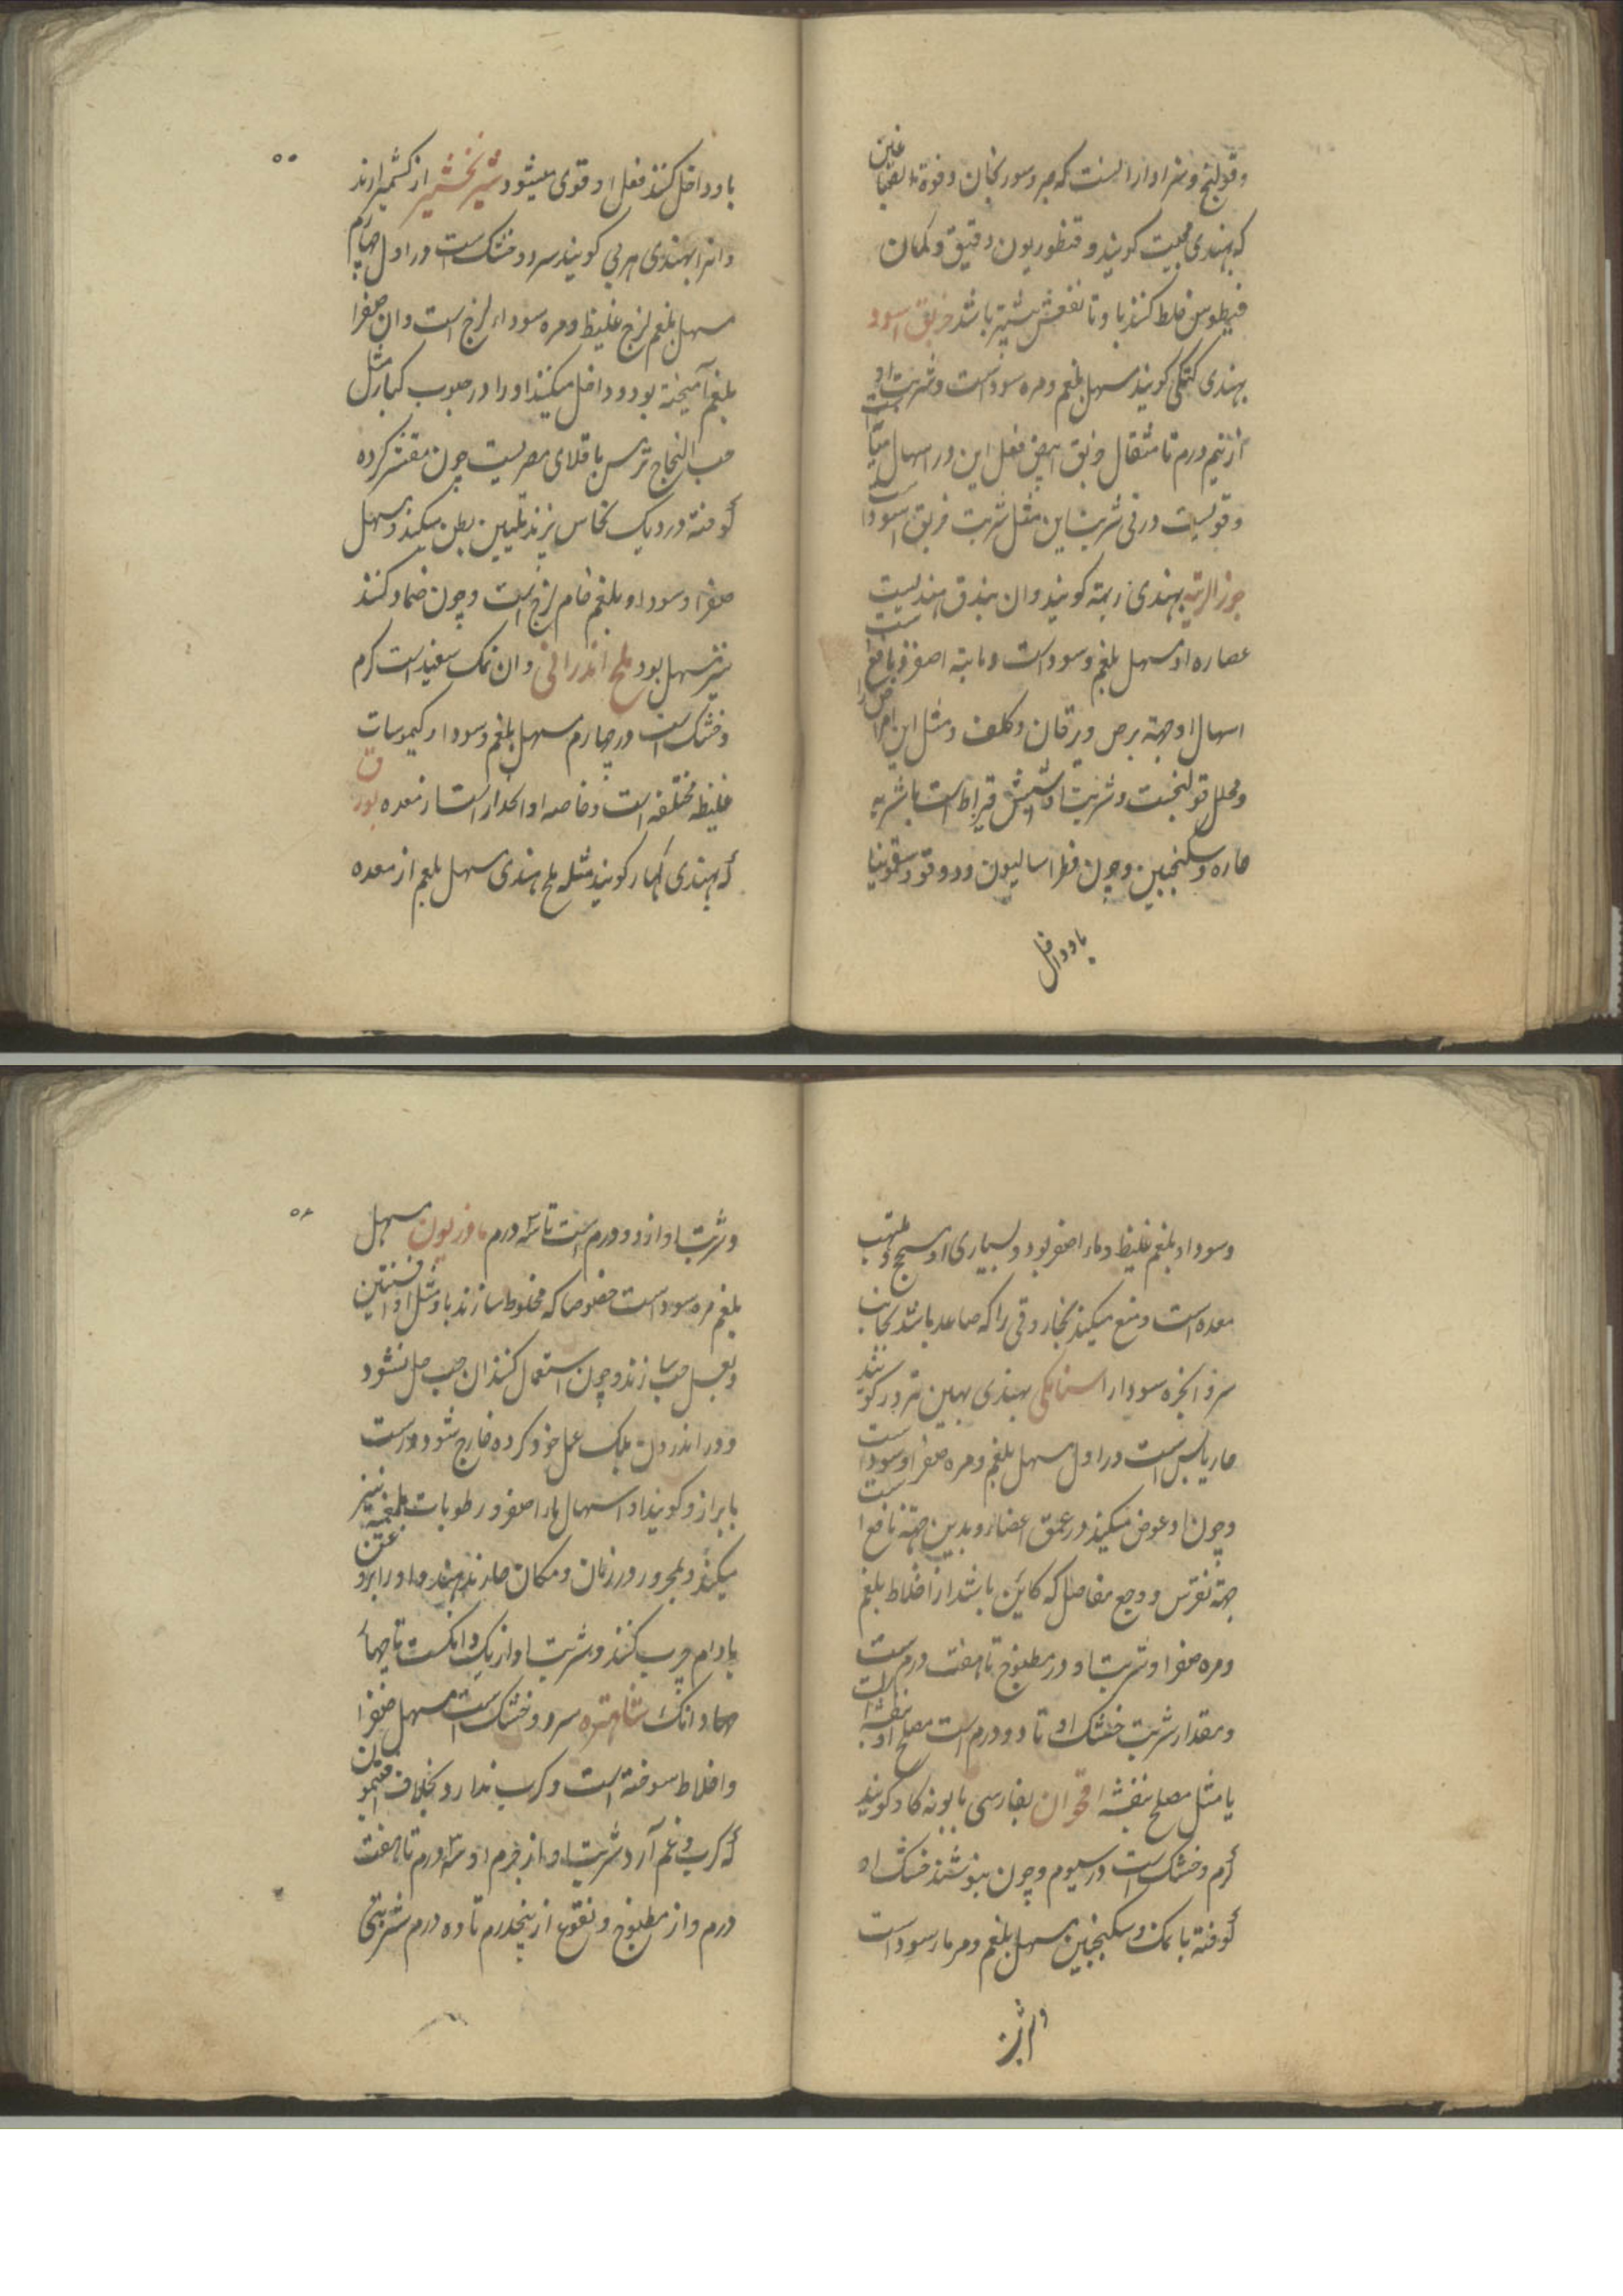 وقولنج و سزاوار انست که صبر و سورنجان و فوة الصباغین
که بهندی مجیت کویند و قنطوریون دقیق و کمان
فیطوس خلط کنند با و تا نفعش بیشتر باشد خربق اسود
بهندی کتکی کویند مسهل بلغم و مره سوداست و شربت او
از نیم درم تا مثقال خربق ابیض فعل این در اسهال
و قویست در قی شربت این مثل شربت خربق اسود است
جوز الرته بهندی ریته کویند و ان بندق هندیست
عصاره او مسهل بلغم و سوداست و مایته اصفر و نافع است
اسهال او جهة برص و یرقان و کلف و مثل این امراض را
و محلل قولنجست و شربت او شش قیراط است باشربه
حاره و سکنجبین و چون فطراسالیون و دوقو و سقمونیا
با و داخل
۵۵
با و داخل کنند فعل او قوی میشود شیر خشت از کشمیر ارند
و انرا بهندی هربی کویند سرد و خشک است در اول چهارم
مسهل بلغم لزج غلیظ و مره سوداء لزج است و ان صفرا
بلغم آمیخته بود و داخل میکنند او را در حبوب کبار مثل
حب النجاح ترمس باقلای مصریست چون مقشر کرده
کوفته در دیک نحاس پزند تلیین بطن میکند و مسهل
صفرا و سودا و بلغم خام لزج است و چون ضماد کنند
نیز مسهل بود ملح اندرانی و ان نمک سفید است کرم
و خشک است در چهارم مسهل بلغم و سودا و کیموسات
غلیظه مختلفه است و خاصه او انحدار است از معده بورق
که بهندی کهار کویند مثله ملح هندی مسهل بلغم از معده
و سودا و بلغم غلیظ و ماء اصفر بود و بسیاری او مسحج و ملتهب
معده است و منع میکند بخار دقی را که صاعد باشد بجانب
سر و ابخره سودا را سنا مکی بهندی بهین تروَر کویند
حار یابس است در اول مسهل بلغم و مره صفرا و سوداست
و چون او غوص میکند در عمق اعضا و بدین جهة نافع است
جهة نقرس و وجع مفاصل که کاین باشد از اخلاط بلغم
و مره صفرا و شربت او در مطبوخ تا هفت درم است
و مقدار شربت خشک او تا دو درم است مصلح او بنفشه است
یا مثل مصلح بنفشه اقحوان بفارسی بابونه کاو کویند
کرم و خشک است در سیوم و چون بنوشند خشک او
کوفته با نمک و سکنجبین مسهل بلغم و مرمار سوداست
و شربت
۵۶
و شربت او از دو درم است تا سه درم مازریون مسهل
بلغم مره سوداست خصوصا که مخلوط سازند با و مثل او افسنتین
و بعسل حب سازند و چون استعمال کنند ان حب حل نشود
در اندرون بلک عمل خود کرده خارج شود درست
با براز و کویند او اسهال ماء اصفر و رطوبات بلغمیه نیز
میکند و بمحرور در زمان و مکان حار ندهند و او را بروغن
بادام چرب کنند و شربت او از یک دانکست تا چهار
دانک شاهتره سرد و خشک است مسهل صفرا
و اخلاط سوخته است و کرب ندارد بخلاف افتیمون
که کرب و غم آرد شربت او از جرم او سه درم تا هفت
درم و از مطبوخ و نقوع از پنجدرم تا ده درم شربتی